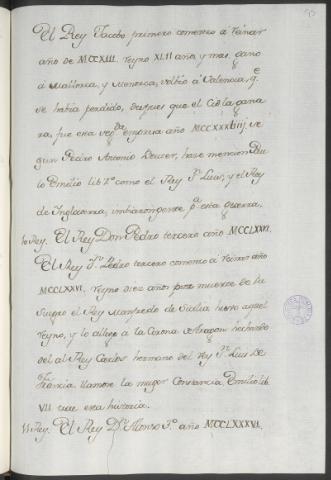 El Rey Jacobo primero comenzo a Reinar
año de MCCXIII. reyno XLII años, y mas, gano
á Mallorca, y Menorca, volbio á Valencia, q.e
se habia perdido, despues que el Cid la gana
ra, fue esta seg.da empresa año MCCXXXVIII, se
gun Pedro Antonio Beuter, hace mencion Pau
lo Emilio lib. 7.º como el Rey S.n Luis, y el Rey
de Inglaterra, imbiaron gente p.a esta Guerra.
10 Rey. El Rey Don Pedro tercero año MCCLXXVI.
El Rey D.n Pedro tercero comenzo á reinar año
MCCLXXVI, reyno diez años por muerte de su
suegro el Rey Manfredo de Sicilia heredo aquel
reyno, y lo allego á la Corona de Aragon hechando
del al Rey Carlos hermano del rey S.n Luis de
Francia llamose la muger Constancia Emilio lib.
VII trae esta historia.
11 Rey. El Rey D.n Alonso 3.º año MCCLXXXVI.